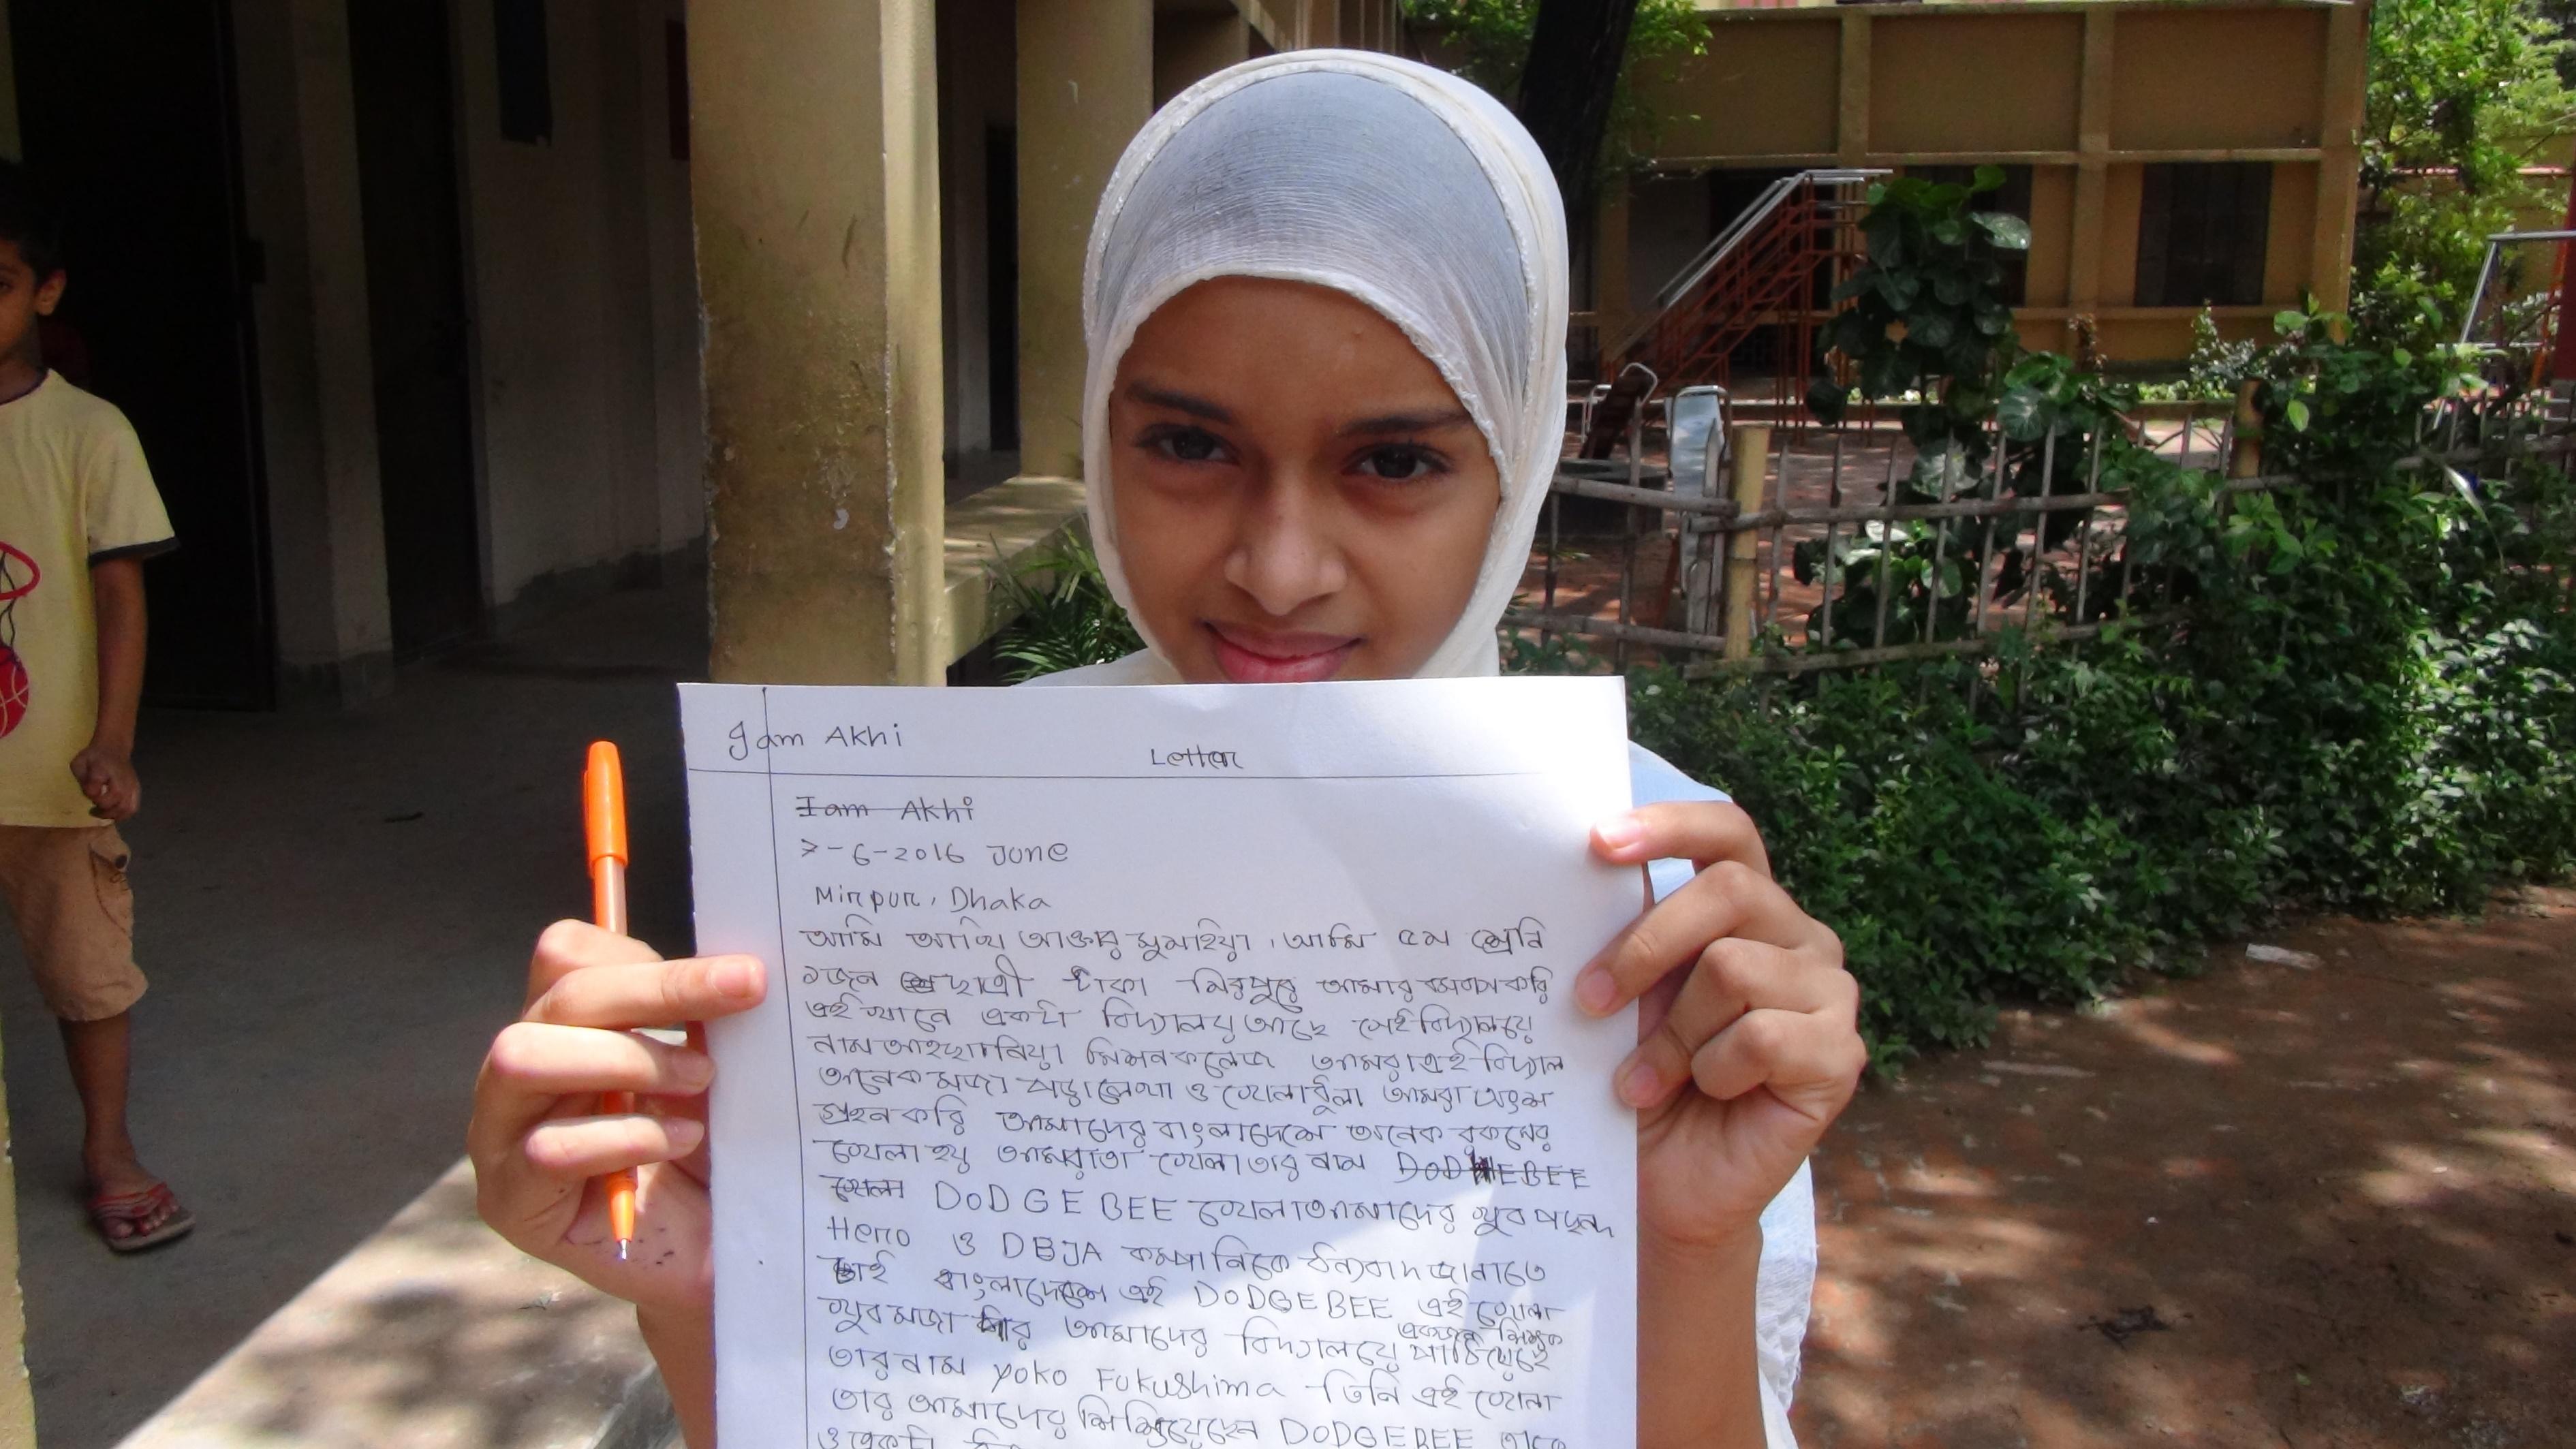 I am Akhi
Letter
I am Akhi
7-6-2016 June
Mirpur, Dhaka
আমি আখি আক্তার সুমাইয়া। আমি ৫ম শ্রেনি
১জন ছাত্রী ঢাকা মিরপুরে আমার বসবাস করি
এই খানে একটা বিদ্যালয় আছে সেই বিদ্যালয়ে
নাম আহছানিয়া মিশন কলেজ আমরা এই বিদ্যাল
অনেক মজা পড়ালেখা ও খেলাধুলা আমরা অংশ
গ্রহন করি আমাদের বাংলাদেশে অনেক রকমের
খেলা হয় আমরা তা খেলা তার নাম DODGEBEE
খেলা DODGEBEE খেলা আমাদের খুব পছন্দ
Hero ও DBJA কম্পানিকে ধন্যবাদ জানাতে
চাই বাংলাদেশে এই DODGEBEE এই খেলা
খুব মজা আর আমাদের বিদ্যালয়ে একজন শিক্ষক পাঠিয়েছে
তার নাম Yoko Fukushima তিনি এই খেলা
তার আমাদের শিখিয়েছেন DODGEBEE তাকে